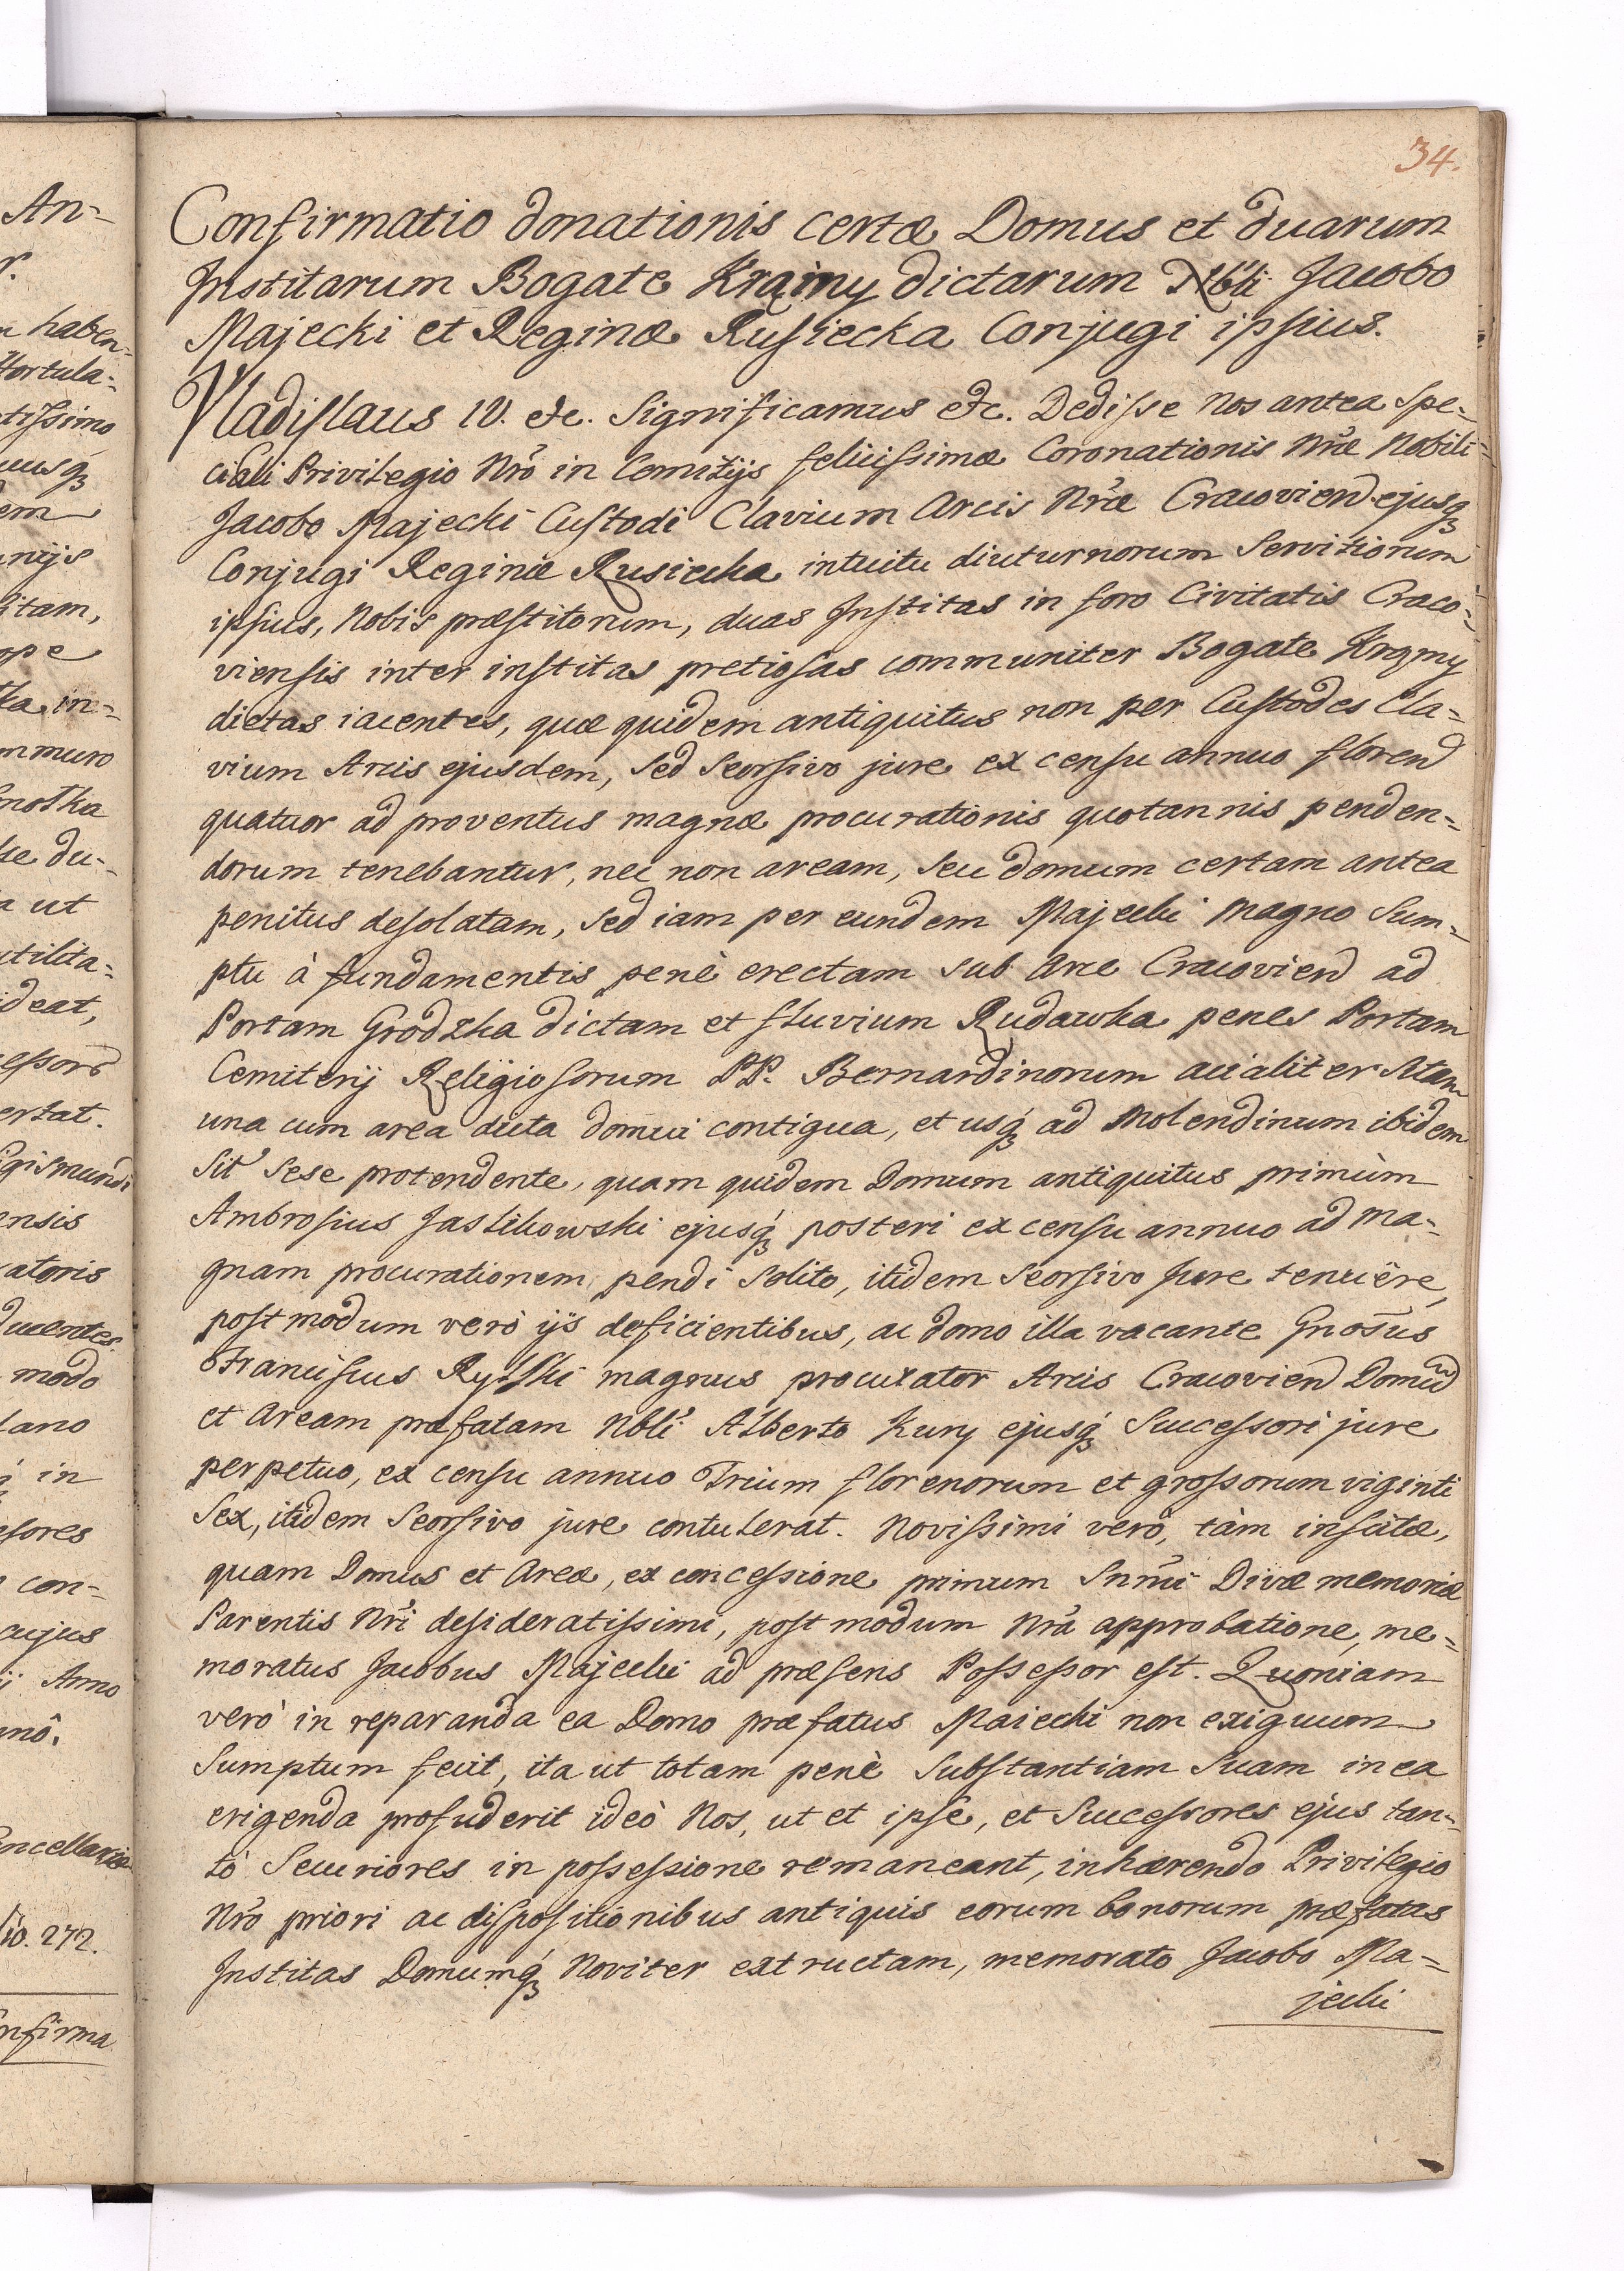 34.
Confirmatio donationis certæ Domus et duarum
Institarum Bogate Kramy dictarum Nbli Jacobo
Majecki et Reginæ Rusiecka Conjugi ipsius.
Vladislaus IV. etc. Significamus etc. Dedisse Nos antea Spe-
ciali Privilegio Nro in Comitijs felicissimæ Coronationis Nræ Nobili
Jacobo Majecki Custodi Clavium Arcis Nræ Cracovien ejusq3
Conjugi Reginæ Rusiecka intuitu diuturnorum Servitiorum
ipsius, Nobis præstitorum, duas Institas in foro Civitatis Craco-
viensis inter institas pretiosas communiter Bogate Kramy
dictas iacentes, quæ quidem antiquitus non per Custodes Cla-
vium Arcis ejusdem, Sed Seorsivo jure ex censu annuo floren
quatuor ad proventus magnæ procurationis quotannis penden-
dorum tenebantur, nec non aream, Seu domum certam antea
penitus desolatam, Sed iam per eundem Majecki magno Sum-
ptu à fundamentis penè erectam sub Arce Cracovien ad
Portam Grodzka dictam et fluvium Rudawka penes Portam
Cemiterij Religiosorum PP. Bernardinorum
una cum area dicta domui contigua, et usq3 ad Molendinum ibidem
Sit Sese protendente, quam quidem Domum antiquitus primùm
Ambrosius Jastikowski ejusq3 posteri ex censu annuo ad Ma-
gnam procurationem pendi Solito, itidem Seorsivo Jure tenuêre,
postmodum verò ijs deficientibus, ac domo illa vacante Gnosus
Franciscus Rylski magnus procurator Arcis Cracovien Domu
et Aream præfatam Nbli Alberto Kury ejusq3 Successori jure
perpetuo, ex censu annuo Trium florenorum et grossorum viginti
Sex, itidem Seorsivo jure contulerat. Novissimi verò, tàm institæ,
quam Domus et Areæ, ex concessione primum Snmi Divæ memoriæ
Parentis Nri desideratissimi, postmodum Nra approbatione, me-
moratus Jacobus Majecki ad præsens Possessor est. Quoniam
verò in reparanda ea Domo præfatus Maiecki non exiguum
Sumptum fecit, ita ut totam penè Substantiam Suam in ea
erigenda profuderit ideò Nos, ut et ipse, et Successores ejus tan-
tò Securiores in possessione remaneant, inhærendo Privilegio
Nro priori ac dispositionibus antiquis eorum bonorum præfatas
Institas Domumq3 Noviter extructam, memorato Jacobo Ma-
jecki